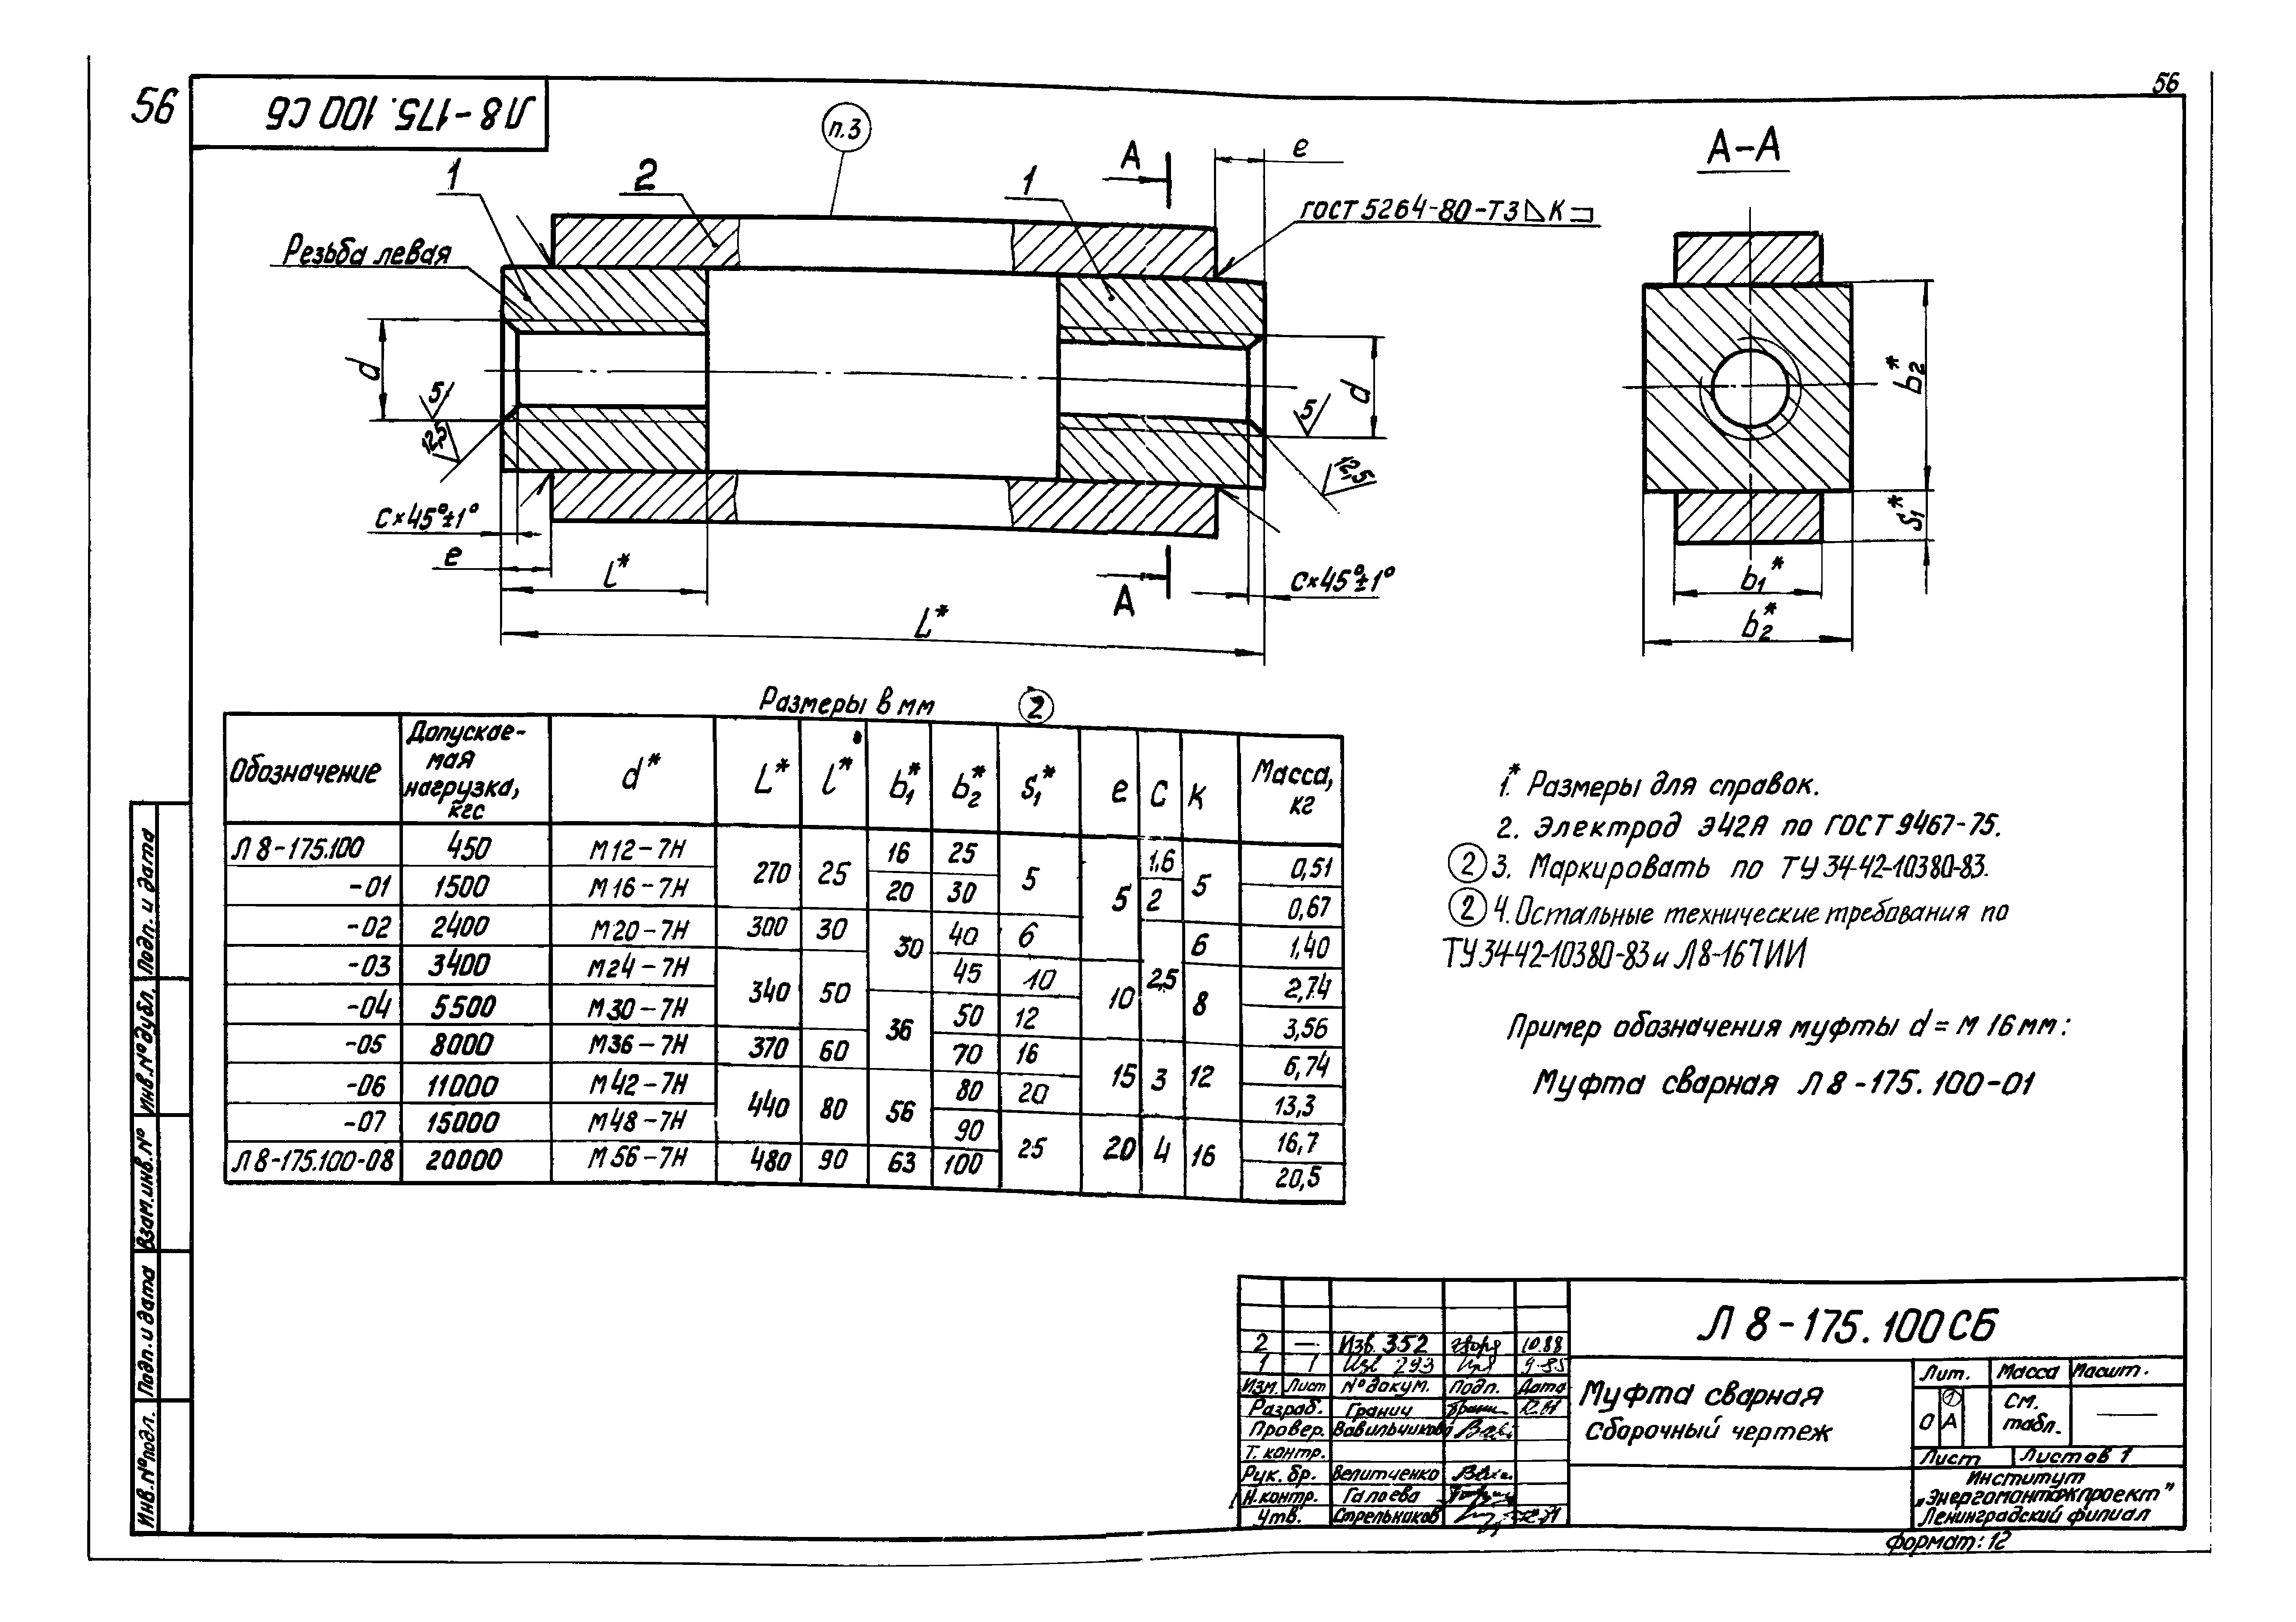 56
56
Л 8-175.100 СБ
п.3
А
е
А-А
1
2
1
ГОСТ 5264-80-Т3 ⊿ К ⊐
Резьба левая
d
5
12,5
d
5
12,5
b₂*
S₁*
с×45°±1°
е
l*
А
с×45°±1°
L*
b₁*
b₂*
Размеры в мм
2
Обозначение Допускаемая нагрузка, кгс d* L* l* b₁* b₂* S₁* е С К Масса, кг
Л 8-175.100 450 М12-7Н 270 25 16 25 5 5 1,6 5 0,51
-01 1500 М16-7Н 20 30 2 0,67
-02 2400 М20-7Н 300 30 30 40 6 2,5 6 1,40
-03 3400 М24-7Н 340 50 45 10 10 8 2,74
-04 5500 М30-7Н 36 50 12 3,56
-05 8000 М36-7Н 370 60 70 16 15 3 12 6,74
-06 11000 М42-7Н 440 80 56 80 20 13,3
-07 15000 М48-7Н 90 25 20 4 16 16,7
Л 8-175.100-08 20000 М56-7Н 480 90 63 100 20,5
1.* Размеры для справок.
2. Электрод Э42А по ГОСТ 9467-75.
2 3. Маркировать по ТУ 34-42-10380-83.
2 4. Остальные технические требования по
ТУ 34-42-10380-83 и Л8-167ИИ
Пример обозначения муфты d = М 16 мм:
Муфта сварная Л 8-175.100-01
Подп. и дата
Инв. № дубл.
Взам. инв. №
Подп. и дата
Инв. № подл.
2 — Изв. 352 10.88
1 1 Изв 293 9-85
Изм. Лист № докум. Подп. Дата
Разраб. Гранич
Провер. Вавильчикова
Т. контр.
Рук. бр. Велитченко
Н. контр. Галоева
Утв. Стрельников
Л 8-175.100СБ
Муфта сварная
Сборочный чертеж
Лит. Масса Масшт.
О А 1 См. табл. —
Лист Листов 1
Институт
„Энергомонтажпроект"
Ленинградский филиал
Формат: 12